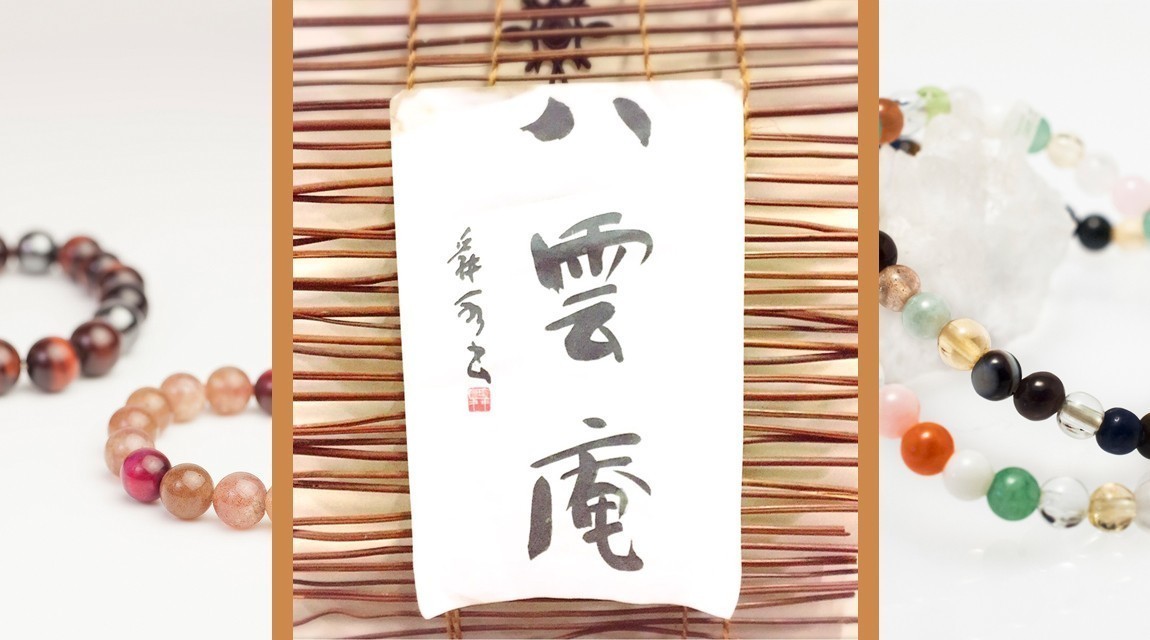 八雲庵